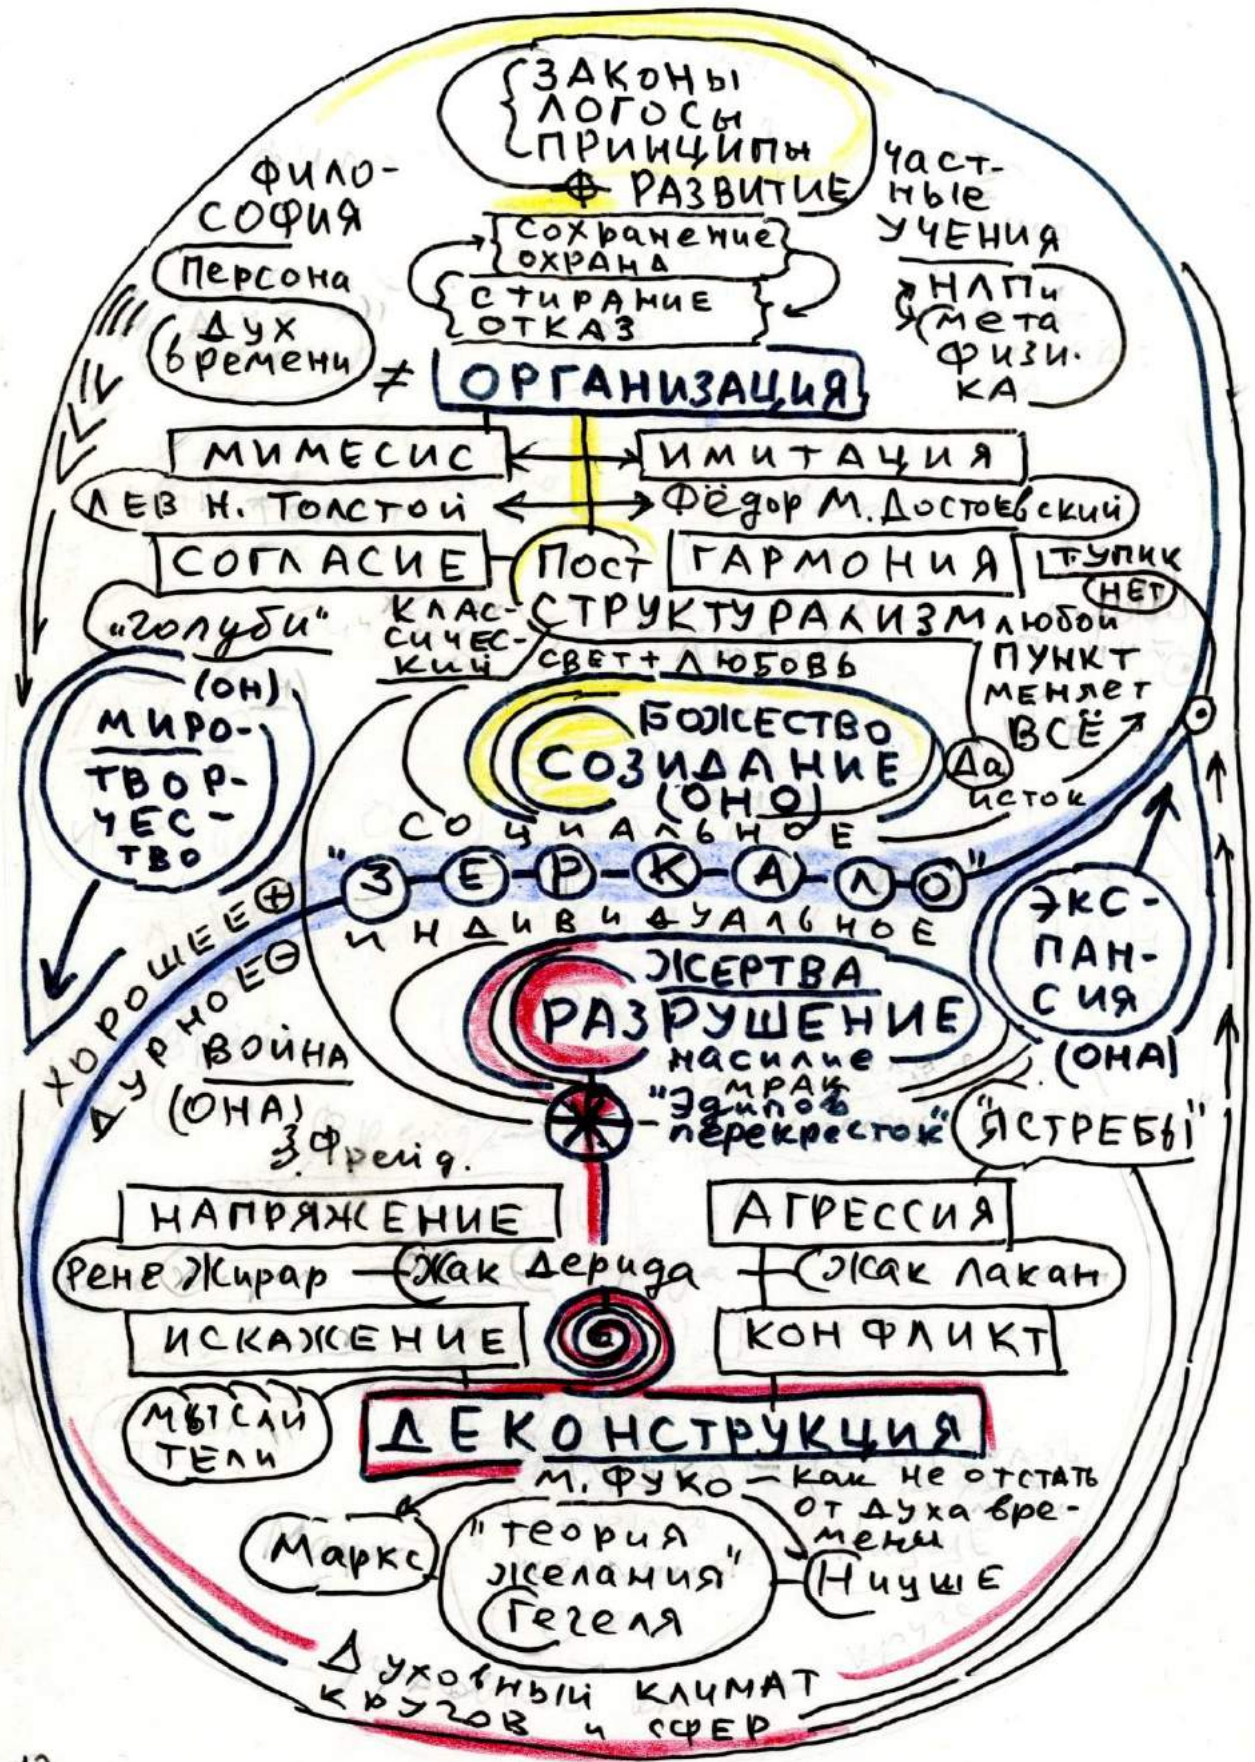 ЗАКОНЫ
ЛОГОСЫ
ПРИНЦИПЫ
РАЗВИТИЕ
ФИЛО-
СОФИЯ
Персона
ДУХ
времени
≠
ЧАСТ-
НЫЕ
УЧЕНИЯ
НЛП и
мета
физи-
КА
сохранение
ОХРАНА
СТИРАНИЕ
ОТКАЗ
ОРГАНИЗАЦИЯ
МИМЕСИС
ИМИТАЦИЯ
ЛЕВ Н. ТОЛСТОЙ
Фёдор М. Достоевский
СОГЛАСИЕ
Пост
ГАРМОНИЯ
ТУПИК
НЕТ
"голуби"
КЛАС-
СИЧЕС-
КИЙ
СТРУКТУРАЛИЗМ
любой
ПУНКТ
меняет
ВСЁ
Да
исток
СВЕТ + ЛЮБОВЬ
(ОН)
МИРО-
ТВОР-
ЧЕС-
ТВО
БОЖЕСТВО
СОЗИДАНИЕ
(ОНО)
СОЦИАЛЬНОЕ
"ЗЕРКАЛО"
ИНДИВИДУАЛЬНОЕ
ХОРОШЕЕ +
ДУРНОЕ -
ЭКС-
ПАН-
СИЯ
(ОНА)
ЖЕРТВА
РАЗРУШЕНИЕ
насилие
МРАК
"Эдипов
перекресток"
ВОЙНА
(ОНА)
З. Фрейд.
"ЯСТРЕБЫ"
НАПРЯЖЕНИЕ
АГРЕССИЯ
Рене Жирар
Жак Дерида
Жак Лакан
ИСКАЖЕНИЕ
КОНФЛИКТ
МЫСЛИ
ТЕЛИ
ДЕКОНСТРУКЦИЯ
М. ФУКО - как не отстать
от духа вре-
мени
Маркс
"теория
желания"
Гегеля
Ницше
Духовный климат
кругов и сфер